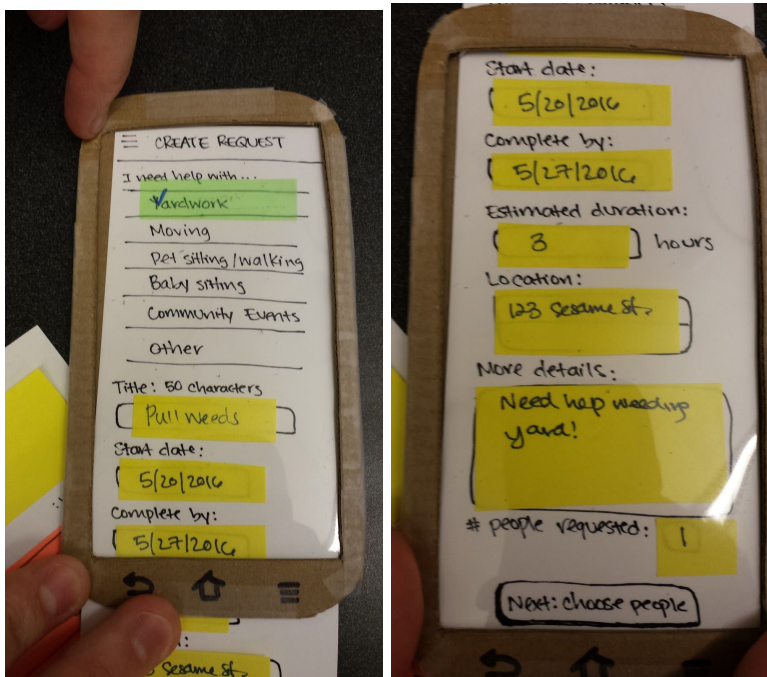 CREATE REQUEST
I need help with...
Yardwork
Moving
Pet sitting/walking
Baby sitting
Community Events
Other
Title: 50 characters
Pull weeds
Start date:
5/20/2016
Complete by:
5/27/2016
Sesame St.
Start date:
5/20/2016
Complete by:
5/27/2016
Estimated duration:
3 hours
Location:
123 Sesame St.
More details:
Need help weeding
yard!
# people requested: 1
Next: choose people